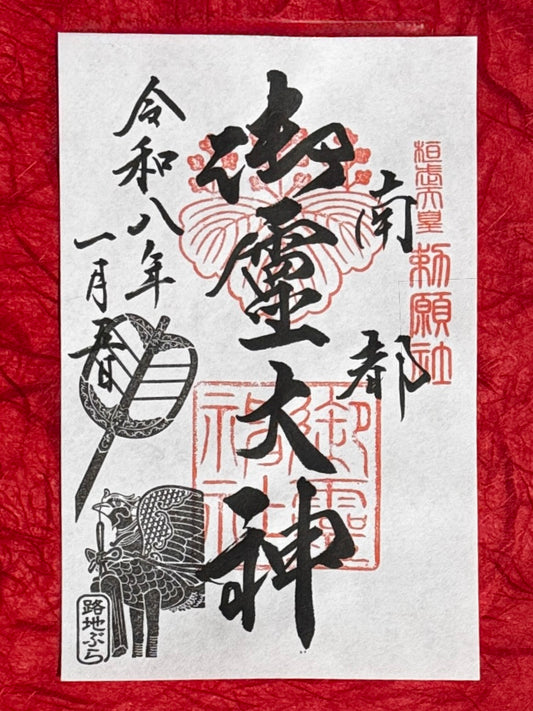 桓武天皇
勅願社
南都
御靈大神
御靈神社
令和八年
一月
路地ぶら